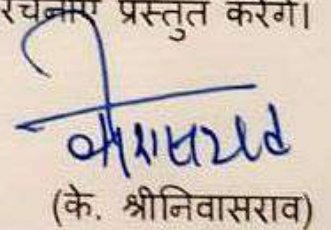 रचनाएँ प्रस्तुत करेंगे।
(के. श्रीनिवासराव)